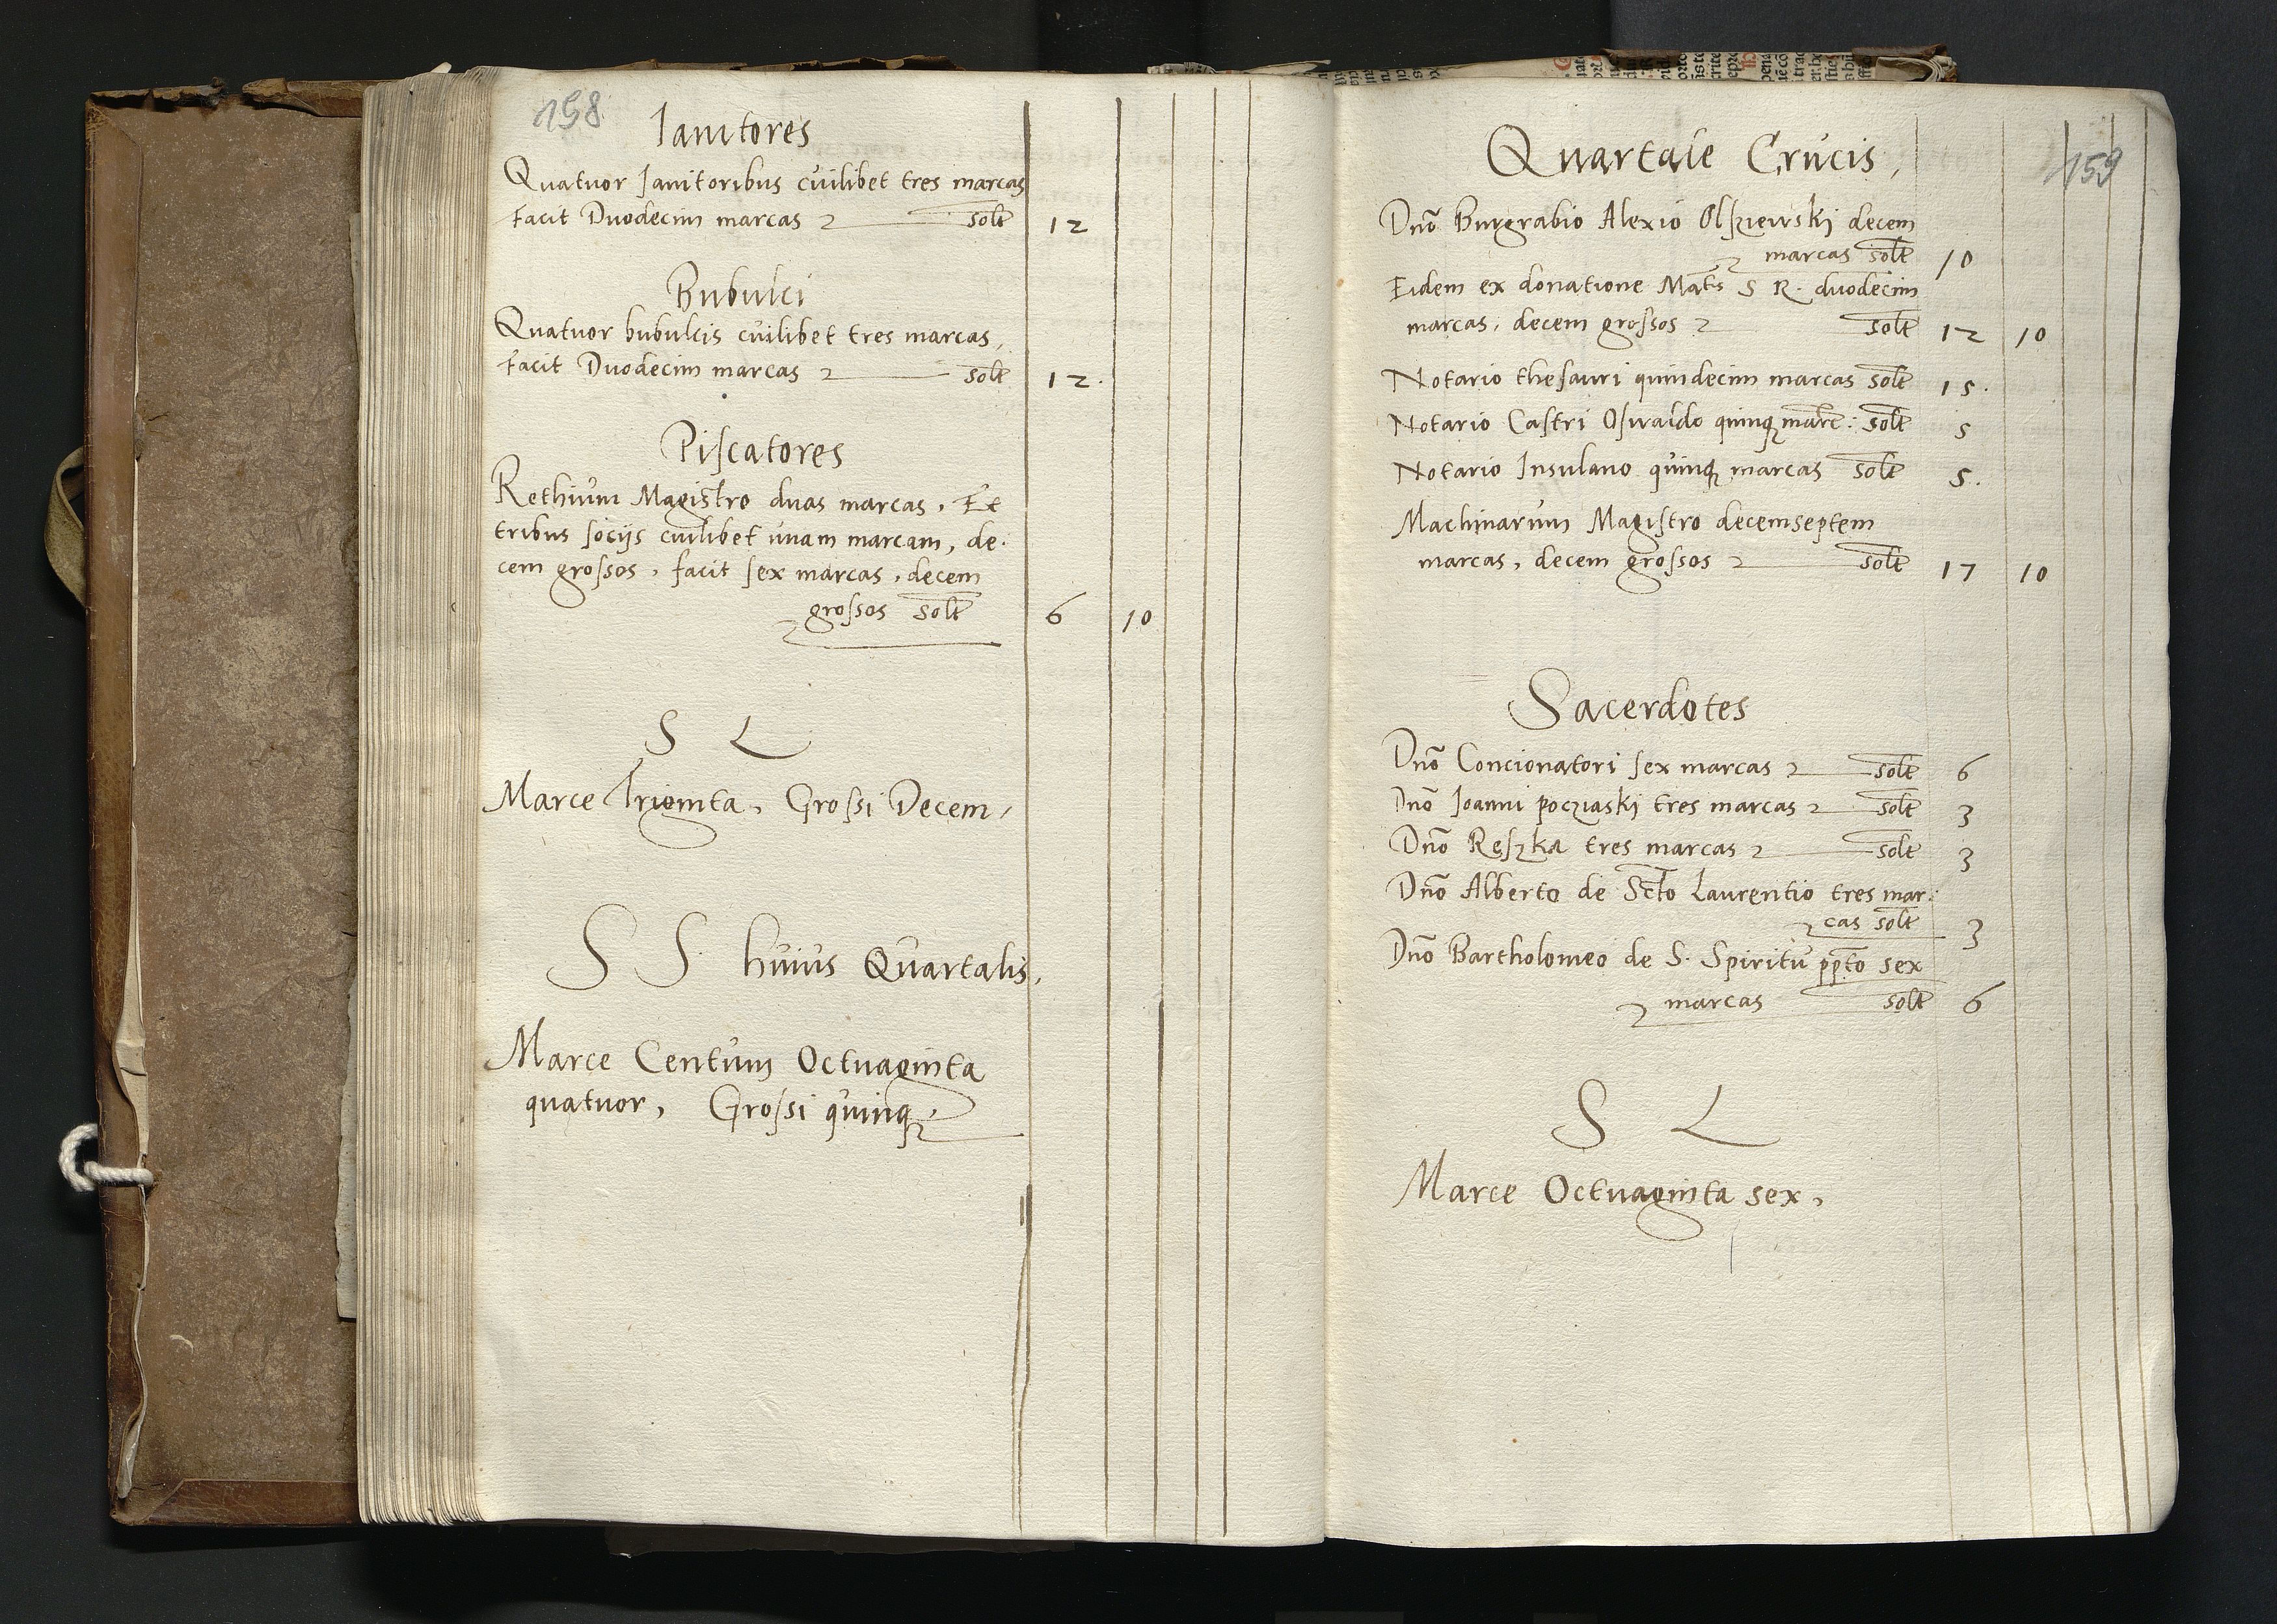 158
Ianitores
Quatuor Ianitoribus cuilibet tres marcas
facit Duodecim marcas solt 12
Bubulci
Quatuor bubulcis cuilibet tres marcas,
facit Duodecim marcas solt 12.
Piscatores
Rethium Magistro duas marcas. Et
tribus socijs cuilibet unam marcam, de-
cem grossos, facit sex marcas, decem
grossos solt 6 10
S L
Marce Triginta, Grossi Decem,
S S huius Quartalis,
Marce Centum Octuaginta
quatuor, Grossi quinq,
159
Quartale Crucis,
Dno Burgrabio Alexio Olsziewskj decem
marcas solt 10
Eidem ex donatione Matis S R. duodecim
marcas, decem grossos solt 12 10
Notario thesauri quindecim marcas solt 15.
Notario Castri Oswaldo quinq marc: solt 5
Notario Insulano quinq marcas solt 5.
Machinarum Magistro decemseptem
marcas, decem grossos solt 17 10
Sacerdotes
Dno Concionatori sex marcas solt 6
Dno Ioanni pocziaskj tres marcas solt 3
Dno Reszka tres marcas solt 3
Dno Alberto de Scto Laurentio tres mar-
cas solt 3
Dno Bartholomeo de S. Spiritu ppto sex
marcas solt 6
S L
Marce Octuaginta sex,